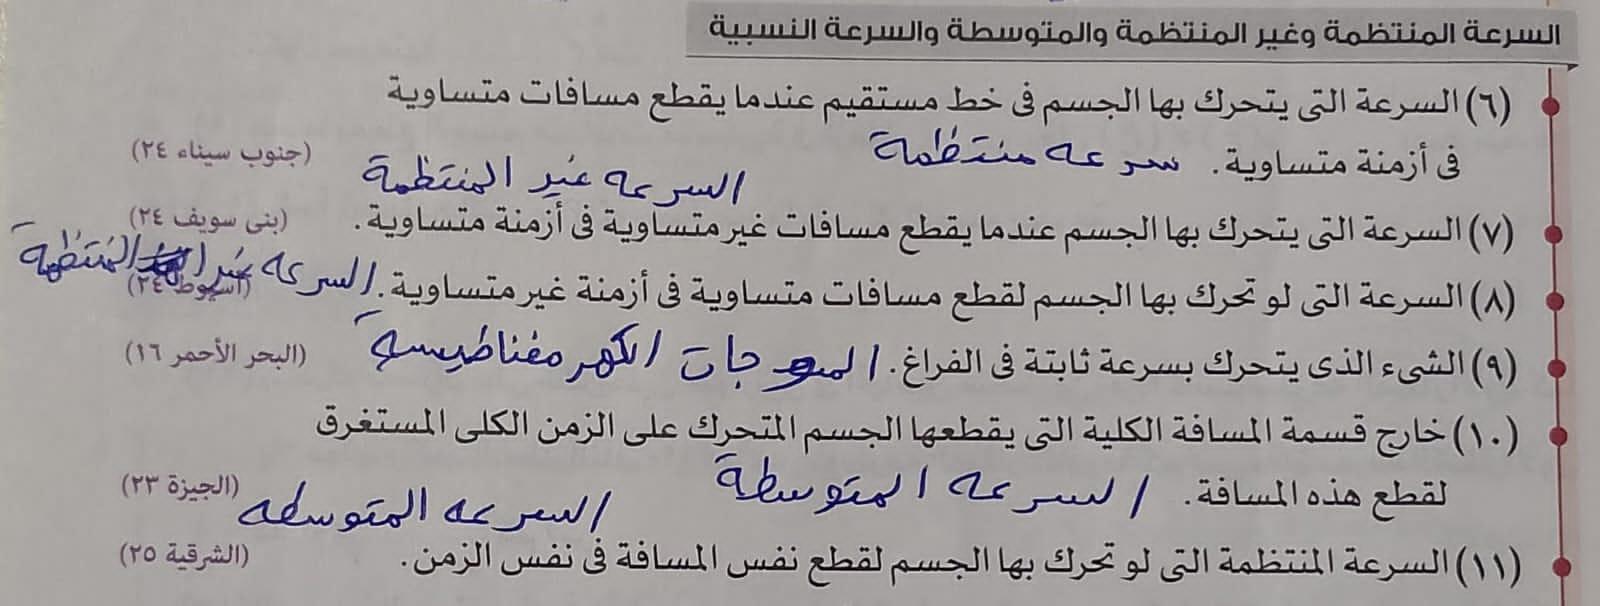 السرعة المنتظمة وغير المنتظمة والمتوسطة والسرعة النسبية
(٦) السرعة التى يتحرك بها الجسم فى خط مستقيم عندما يقطع مسافات متساوية
فى أزمنة متساوية. سرعه منتظمة (جنوب سيناء ٢٤)
السرعه غير المنتظمة
(٧) السرعة التى يتحرك بها الجسم عندما يقطع مسافات غير متساوية فى أزمنة متساوية. (بنى سويف ٢٤)
(٨) السرعة التى لو تحرك بها الجسم لقطع مسافات متساوية فى أزمنة غير متساوية. السرعه غير المنتظمة (أسيوط ٢٤)
(٩) الشىء الذى يتحرك بسرعة ثابتة فى الفراغ. الموجات الكهرمغناطيسية (البحر الأحمر ١٦)
(١٠) خارج قسمة المسافة الكلية التى يقطعها الجسم المتحرك على الزمن الكلى المستغرق
لقطع هذه المسافة. السرعه المتوسطة (الجيزة ٢٣)
السرعه المتوسطه
(١١) السرعة المنتظمة التى لو تحرك بها الجسم لقطع نفس المسافة فى نفس الزمن. (الشرقية ٢٥)